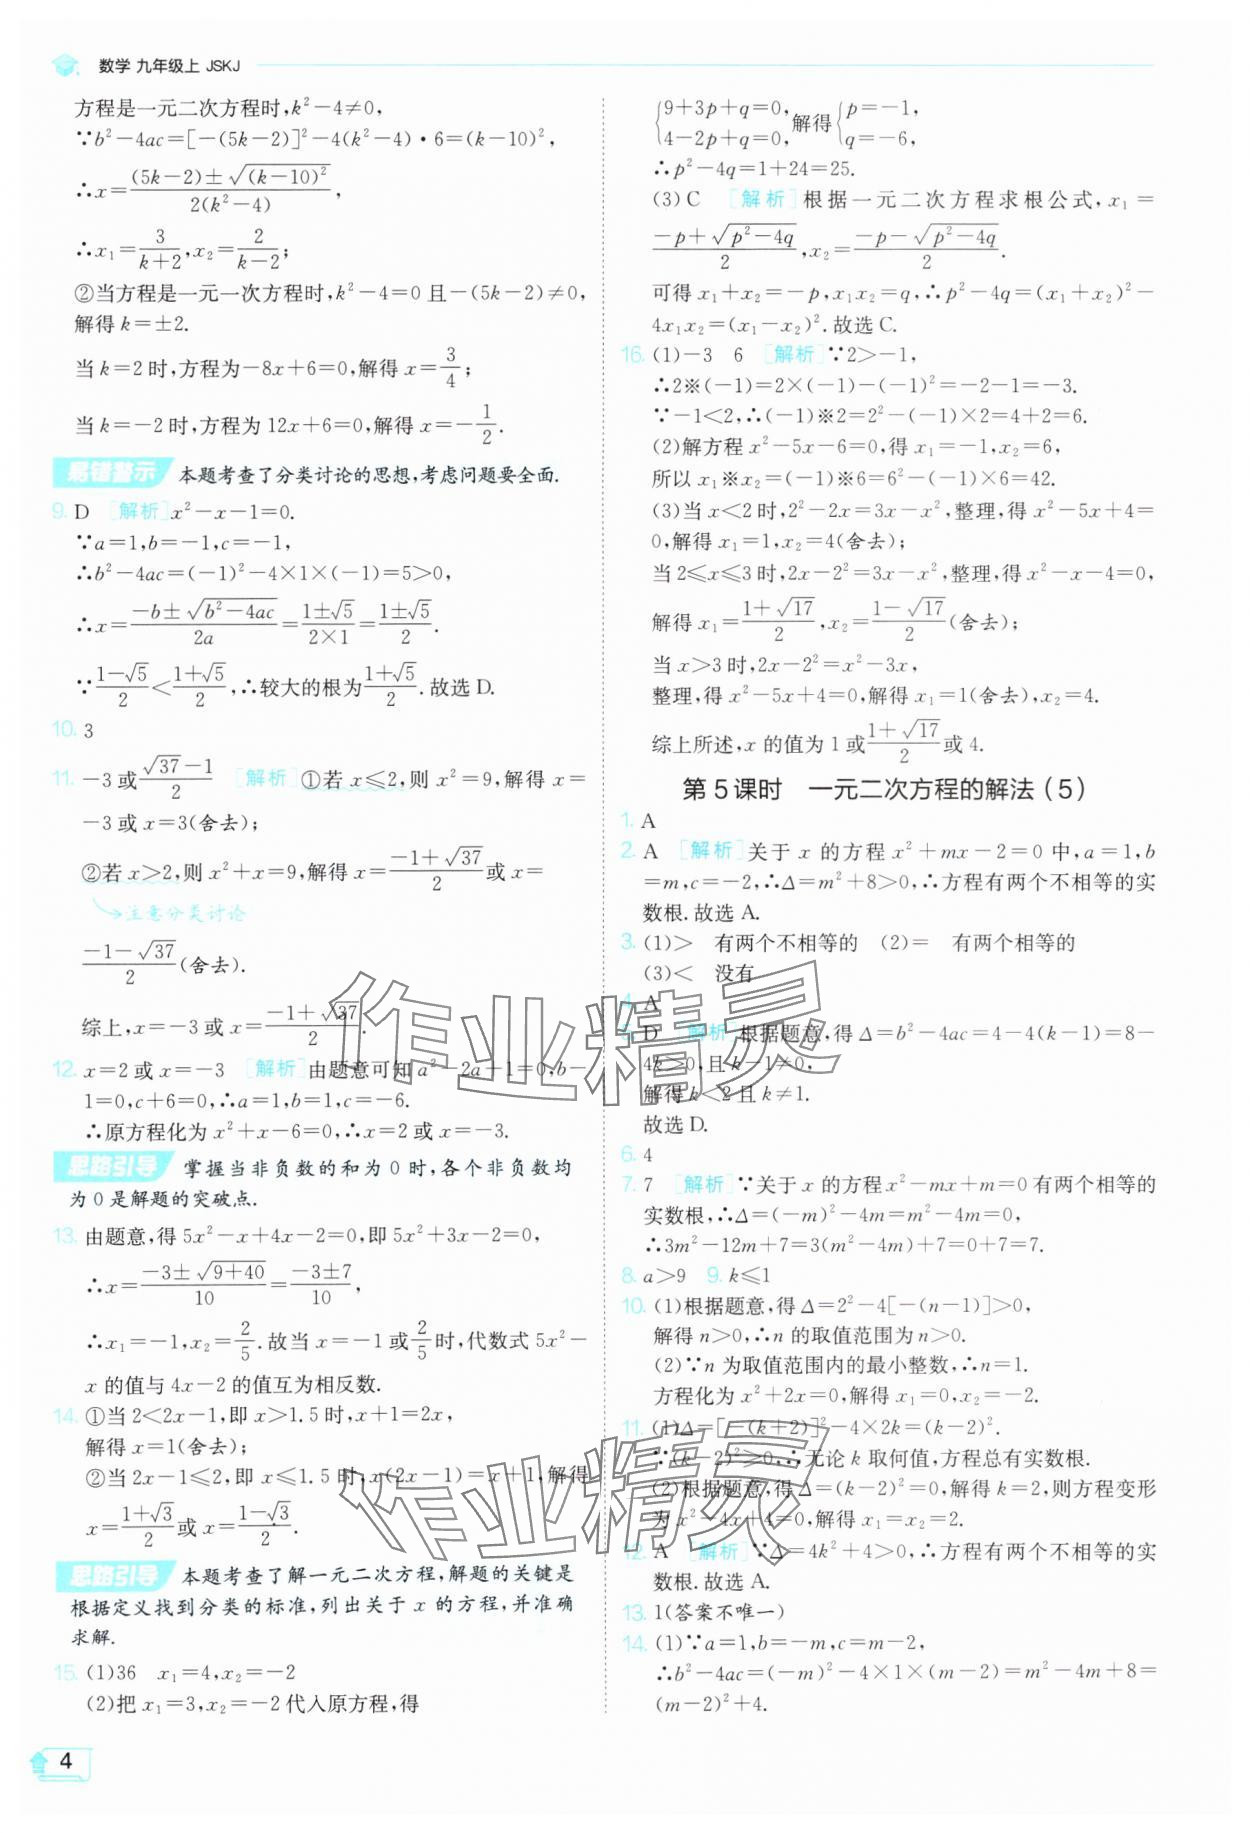 数学 九年级上 JSKJ
方程是一元二次方程时,k²-4≠0,
∵b²-4ac=[-(5k-2)]²-4(k²-4)·6=(k-10)²,
∴x=\frac{(5k-2)±\sqrt{(k-10)²}}{2(k²-4)},
∴x₁=\frac{3}{k+2},x₂=\frac{2}{k-2};
②当方程是一元一次方程时,k²-4=0且-(5k-2)≠0,
解得k=±2.
当k=2时,方程为-8x+6=0,解得x=\frac{3}{4};
当k=-2时,方程为12x+6=0,解得x=-\frac{1}{2}.
易错警示 本题考查了分类讨论的思想,考虑问题要全面.
9. D [解析]x²-x-1=0.
∵a=1,b=-1,c=-1,
∴b²-4ac=(-1)²-4×1×(-1)=5>0,
∴x=\frac{-b±\sqrt{b²-4ac}}{2a}=\frac{1±\sqrt{5}}{2×1}=\frac{1±\sqrt{5}}{2}.
∵\frac{1-\sqrt{5}}{2}<\frac{1+\sqrt{5}}{2},∴较大的根为\frac{1+\sqrt{5}}{2}.故选D.
10. 3
11. -3或\frac{\sqrt{37}-1}{2} [解析]①若x≤2,则x²=9,解得x=
-3或x=3(舍去);
②若x>2,则x²+x=9,解得x=\frac{-1+\sqrt{37}}{2}或x=
→注意分类讨论
\frac{-1-\sqrt{37}}{2}(舍去).
综上,x=-3或x=\frac{-1+\sqrt{37}}{2}.
12. x=2或x=-3 [解析]由题意可知a²-2a+1=0,b-
1=0,c+6=0,∴a=1,b=1,c=-6.
∴原方程化为x²+x-6=0,∴x=2或x=-3.
思路引导 掌握当非负数的和为0时,各个非负数均
为0是解题的突破点.
13. 由题意,得5x²-x+4x-2=0,即5x²+3x-2=0,
∴x=\frac{-3±\sqrt{9+40}}{10}=\frac{-3±7}{10},
∴x₁=-1,x₂=\frac{2}{5}.故当x=-1或\frac{2}{5}时,代数式5x²-
x的值与4x-2的值互为相反数.
14. ①当2<2x-1,即x>1.5时,x+1=2x,
解得x=1(舍去);
②当2x-1≤2,即x≤1.5时,x(2x-1)=x+1,解得
x=\frac{1+\sqrt{3}}{2}或x=\frac{1-\sqrt{3}}{2}.
思路引导 本题考查了解一元二次方程,解题的关键是
根据定义找到分类的标准,列出关于x的方程,并准确
求解.
15. (1)36 x₁=4,x₂=-2
(2)把x₁=3,x₂=-2代入原方程,得
4
{9+3p+q=0, 4-2p+q=0,解得{p=-1, q=-6,
∴p²-4q=1+24=25.
(3)C [解析]根据一元二次方程求根公式,x₁=
\frac{-p+\sqrt{p²-4q}}{2},x₂=\frac{-p-\sqrt{p²-4q}}{2}.
可得x₁+x₂=-p,x₁x₂=q,∴p²-4q=(x₁+x₂)²-
4x₁x₂=(x₁-x₂)².故选C.
16. (1)-3 6 [解析]∵2>-1,
∴2※(-1)=2×(-1)-(-1)²=-2-1=-3.
∵-1<2,∴(-1)※2=2²-(-1)×2=4+2=6.
(2)解方程x²-5x-6=0,得x₁=-1,x₂=6,
所以x₁※x₂=(-1)※6=6²-(-1)×6=42.
(3)当x<2时,2²-2x=3x-x²,整理,得x²-5x+4=
0,解得x₁=1,x₂=4(舍去);
当2≤x≤3时,2x-2²=3x-x²,整理,得x²-x-4=0,
解得x₁=\frac{1+\sqrt{17}}{2},x₂=\frac{1-\sqrt{17}}{2}(舍去);
当x>3时,2x-2²=x²-3x,
整理,得x²-5x+4=0,解得x₁=1(舍去),x₂=4.
综上所述,x的值为1或\frac{1+\sqrt{17}}{2}或4.
第5课时 一元二次方程的解法(5)
1. A
2. A [解析]关于x的方程x²+mx-2=0中,a=1,b
=m,c=-2,∴Δ=m²+8>0,∴方程有两个不相等的实
数根.故选A.
3. (1)> 有两个不相等的 (2)= 有两个相等的
(3)< 没有
4. A
5. D [解析]根据题意,得Δ=b²-4ac=4-4(k-1)=8-
4k>0,且k-1≠0,
解得k<2且k≠1.
故选D.
6. 4
7. 7 [解析]∵关于x的方程x²-mx+m=0有两个相等的
实数根,∴Δ=(-m)²-4m=m²-4m=0,
∴3m²-12m+7=3(m²-4m)+7=0+7=7.
8. a>9 9. k≤1
10. (1)根据题意,得Δ=2²-4[-(n-1)]>0,
解得n>0,∴n的取值范围为n>0.
(2)∵n为取值范围内的最小整数,∴n=1.
方程化为x²+2x=0,解得x₁=0,x₂=-2.
11. (1)Δ=[-(k+2)]²-4×2k=(k-2)².
∵(k-2)²≥0,∴无论k取何值,方程总有实数根.
(2)根据题意,得Δ=(k-2)²=0,解得k=2,则方程变形
为x²-4x+4=0,解得x₁=x₂=2.
12. A [解析]∵Δ=4k²+4>0,∴方程有两个不相等的实
数根.故选A.
13. 1(答案不唯一)
14. (1)∵a=1,b=-m,c=m-2,
∴b²-4ac=(-m)²-4×1×(m-2)=m²-4m+8=
(m-2)²+4.
作业精灵
作业精灵